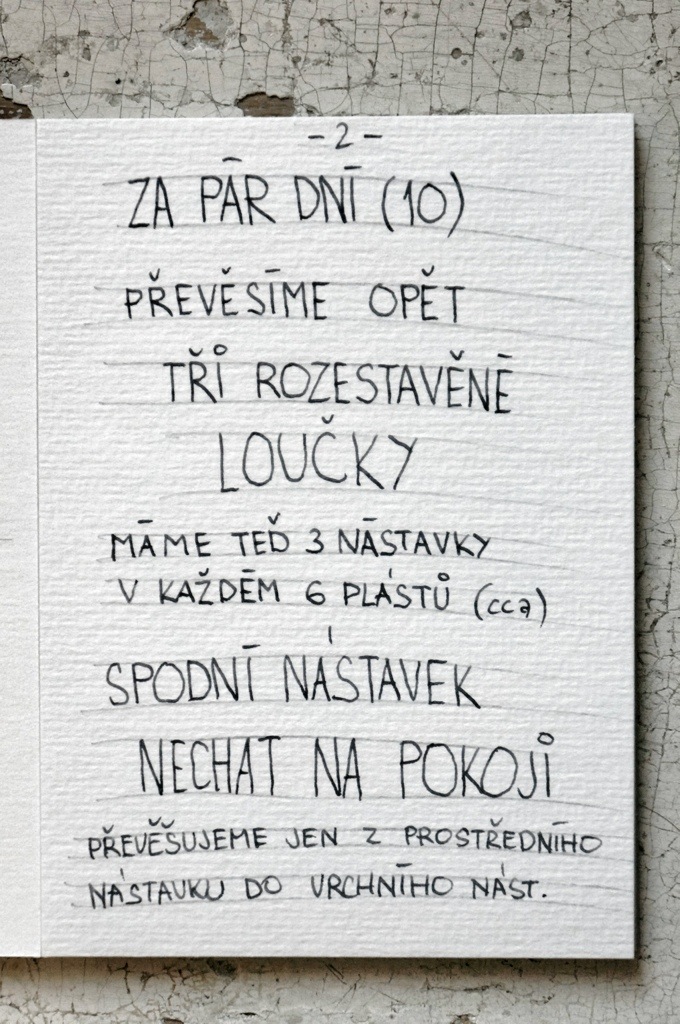 -2-
ZA PÁR DNÍ (10)
PŘEVĚSÍME OPĚT
TŘI ROZESTAVĚNÉ
LOUČKY
MÁME TEĎ 3 NÁSTAVKY
V KAŽDÉM 6 PLÁSTŮ (cca)
SPODNÍ NÁSTAVEK
NECHAT NA POKOJI
PŘEVĚŠUJEME JEN Z PROSTŘEDNÍHO
NÁSTAVKU DO VRCHNÍHO NÁST.